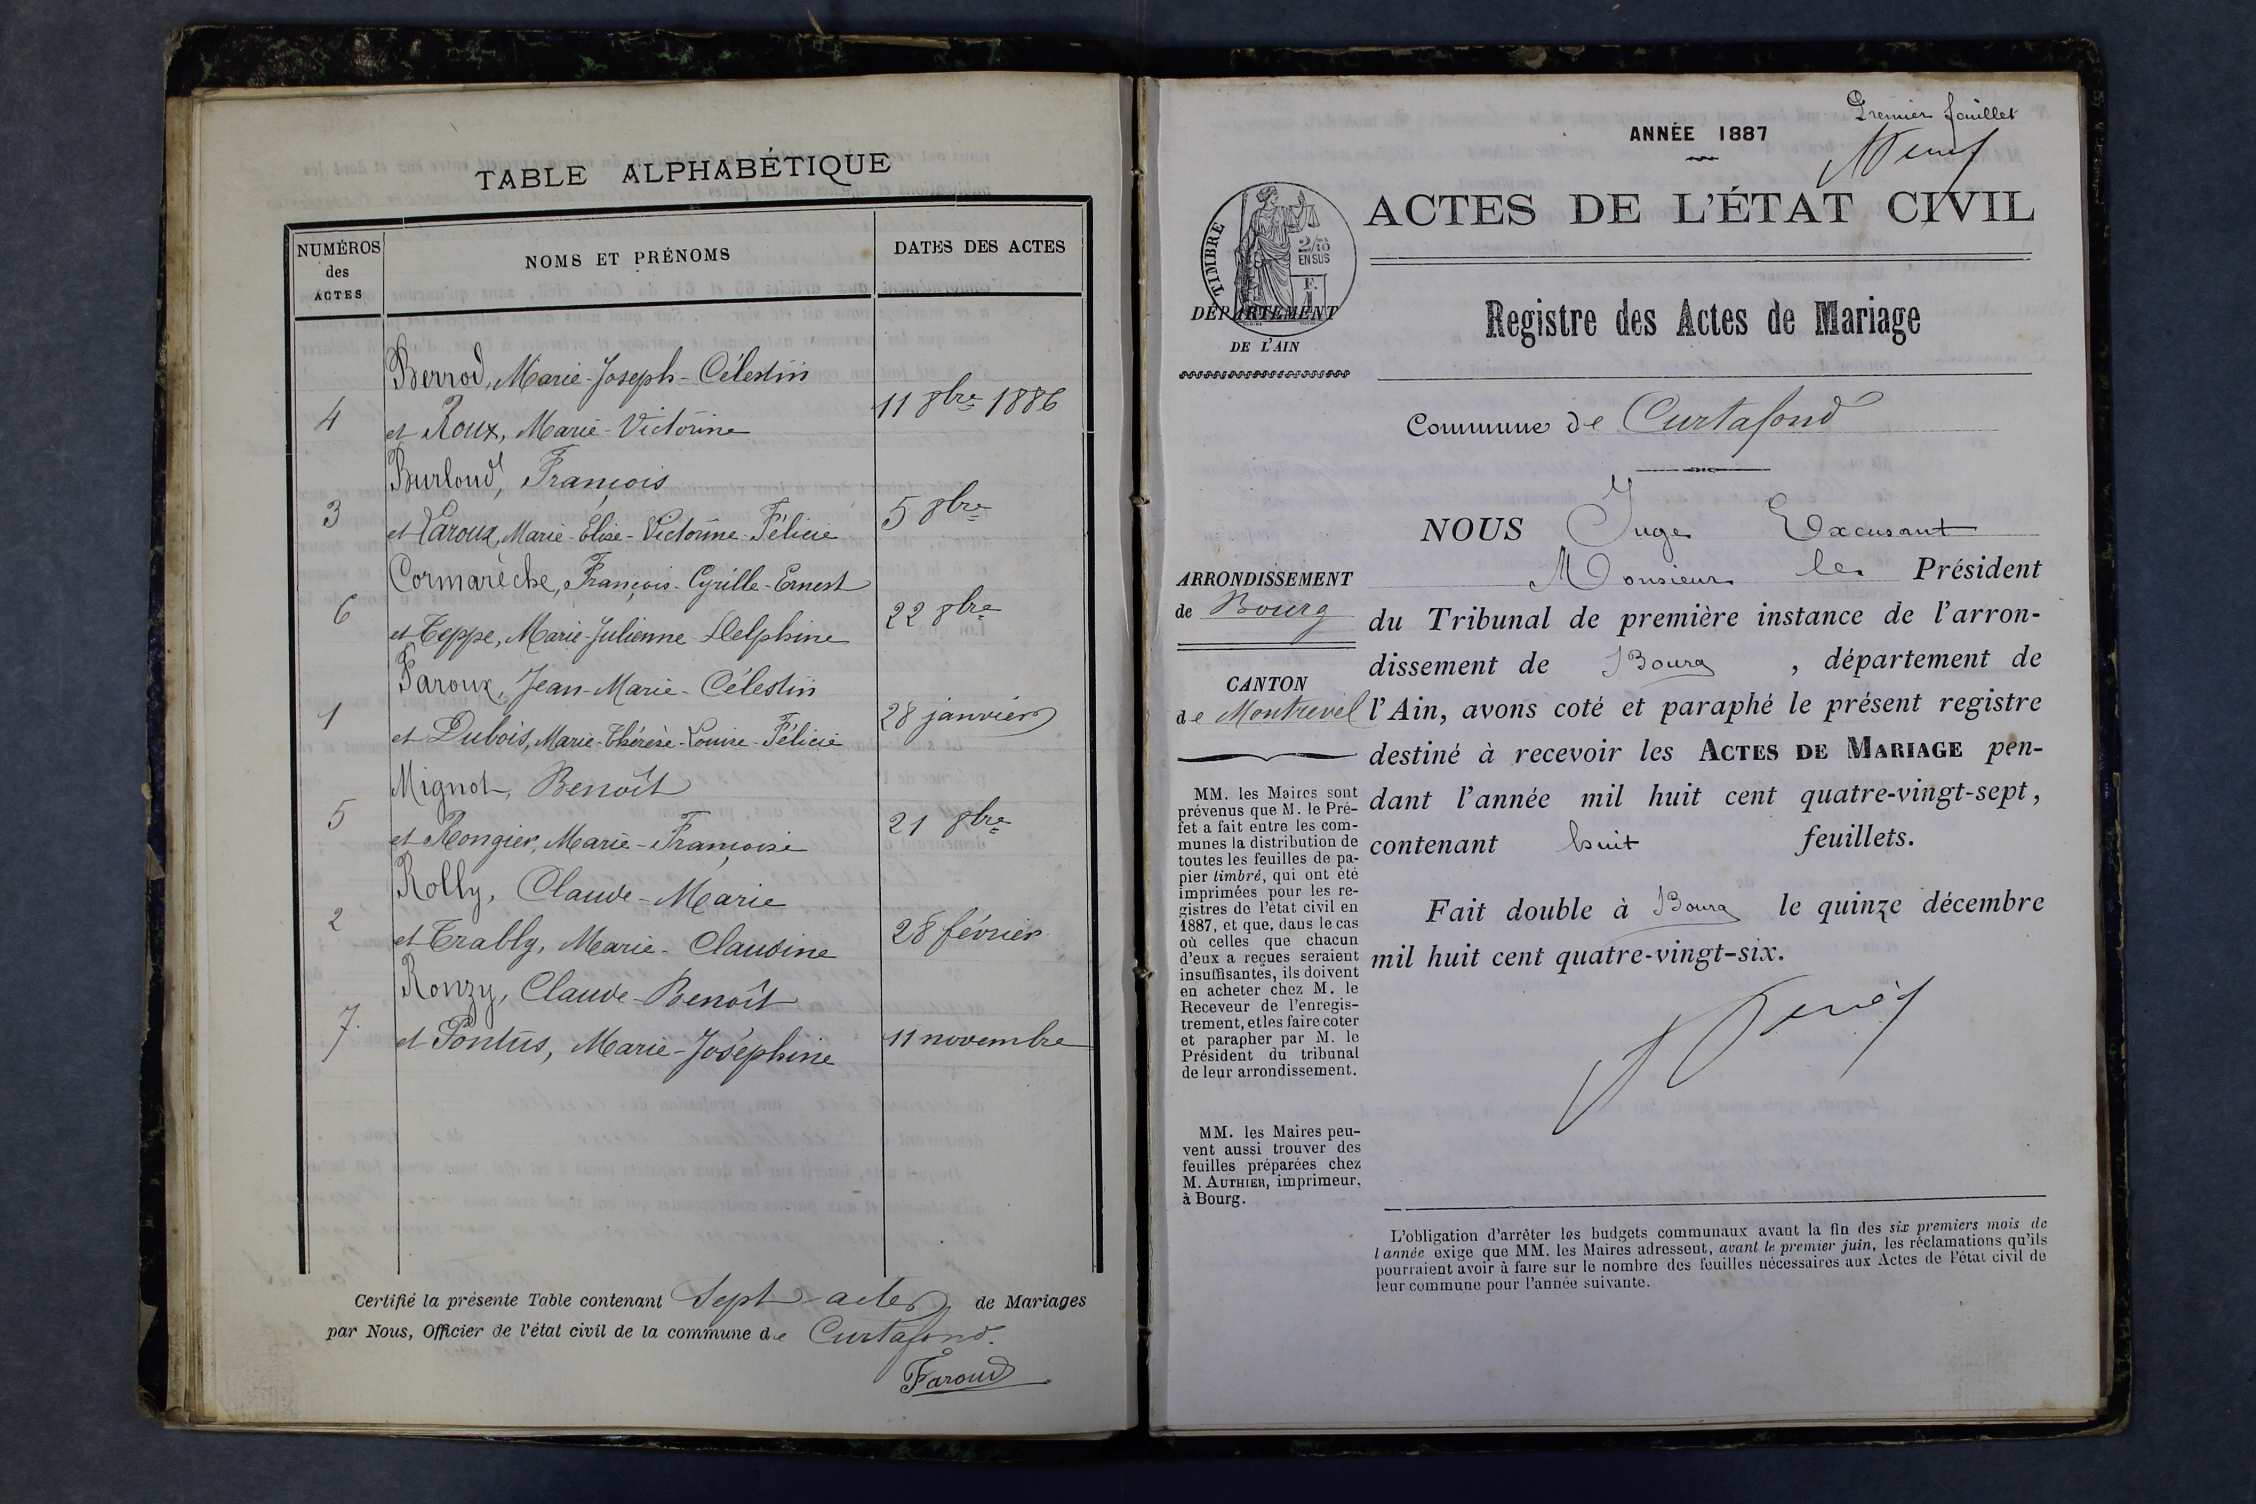 TABLE ALPHABÉTIQUE
NUMÉROS
des
ACTES
NOMS ET PRÉNOMS
DATES DES ACTES
Berrod, Marie-Joseph-Célestin
4 et Roux, Marie-Victorine 11 8bre 1886
Burloud, François
3 et Laroux, Marie-Elise-Victorine-Félicie 5 8bre
Cormarèche, François-Cyrille-Ernest
6 et Teppe, Marie-Julienne-Delphine 22 8bre
Faroux, Jean-Marie-Célestin
1 et Dubois, Marie-Thérèse-Louise-Félicie 28 janvier
Mignot, Benoît
5 et Rongier, Marie-Françoise 21 8bre
Rolly, Claude-Marie
2 et Trably, Marie-Claudine 28 février
Ronzy, Claude-Benoît
7. et Pontus, Marie-Joséphine 11 novembre
Certifié la présente Table contenant Sept actes de Mariages
par Nous, Officier de l'état civil de la commune de Curtafond.
Faroud
Premier feuillet
ANNÉE 1887
ACTES DE L'ÉTAT CIVIL
TIMBRE
2/10
EN SUS
F.
1
DÉPARTEMENT
DE L'AIN
Registre des Actes de Mariage
Commune de Curtafond
NOUS Juge Excusant
Monsieur le Président
du Tribunal de première instance de l'arron-
dissement de Bourg, département de
l'Ain, avons coté et paraphé le présent registre
destiné à recevoir les ACTES DE MARIAGE pen-
dant l'année mil huit cent quatre-vingt-sept,
contenant huit feuillets.
Fait double à Bourg le quinze décembre
mil huit cent quatre-vingt-six.
ARRONDISSEMENT
de Bourg
CANTON
de Montrevel
MM. les Maires sont
prévenus que M. le Pré-
fet a fait entre les com-
munes la distribution de
toutes les feuilles de pa-
pier timbré, qui ont été
imprimées pour les re-
gistres de l'état civil en
1887, et que, dans le cas
où celles que chacun
d'eux a reçues seraient
insuffisantes, ils doivent
en acheter chez M. le
Receveur de l'enregis-
trement, et les faire coter
et parapher par M. le
Président du tribunal
de leur arrondissement.
MM. les Maires peu-
vent aussi trouver des
feuilles préparées chez
M. AUTHIER, imprimeur,
à Bourg.
L'obligation d'arrêter les budgets communaux avant la fin des six premiers mois de
l'année exige que MM. les Maires adressent, avant le premier juin, les réclamations qu'ils
pourraient avoir à faire sur le nombre des feuilles nécessaires aux Actes de l'état civil de
leur commune pour l'année suivante.